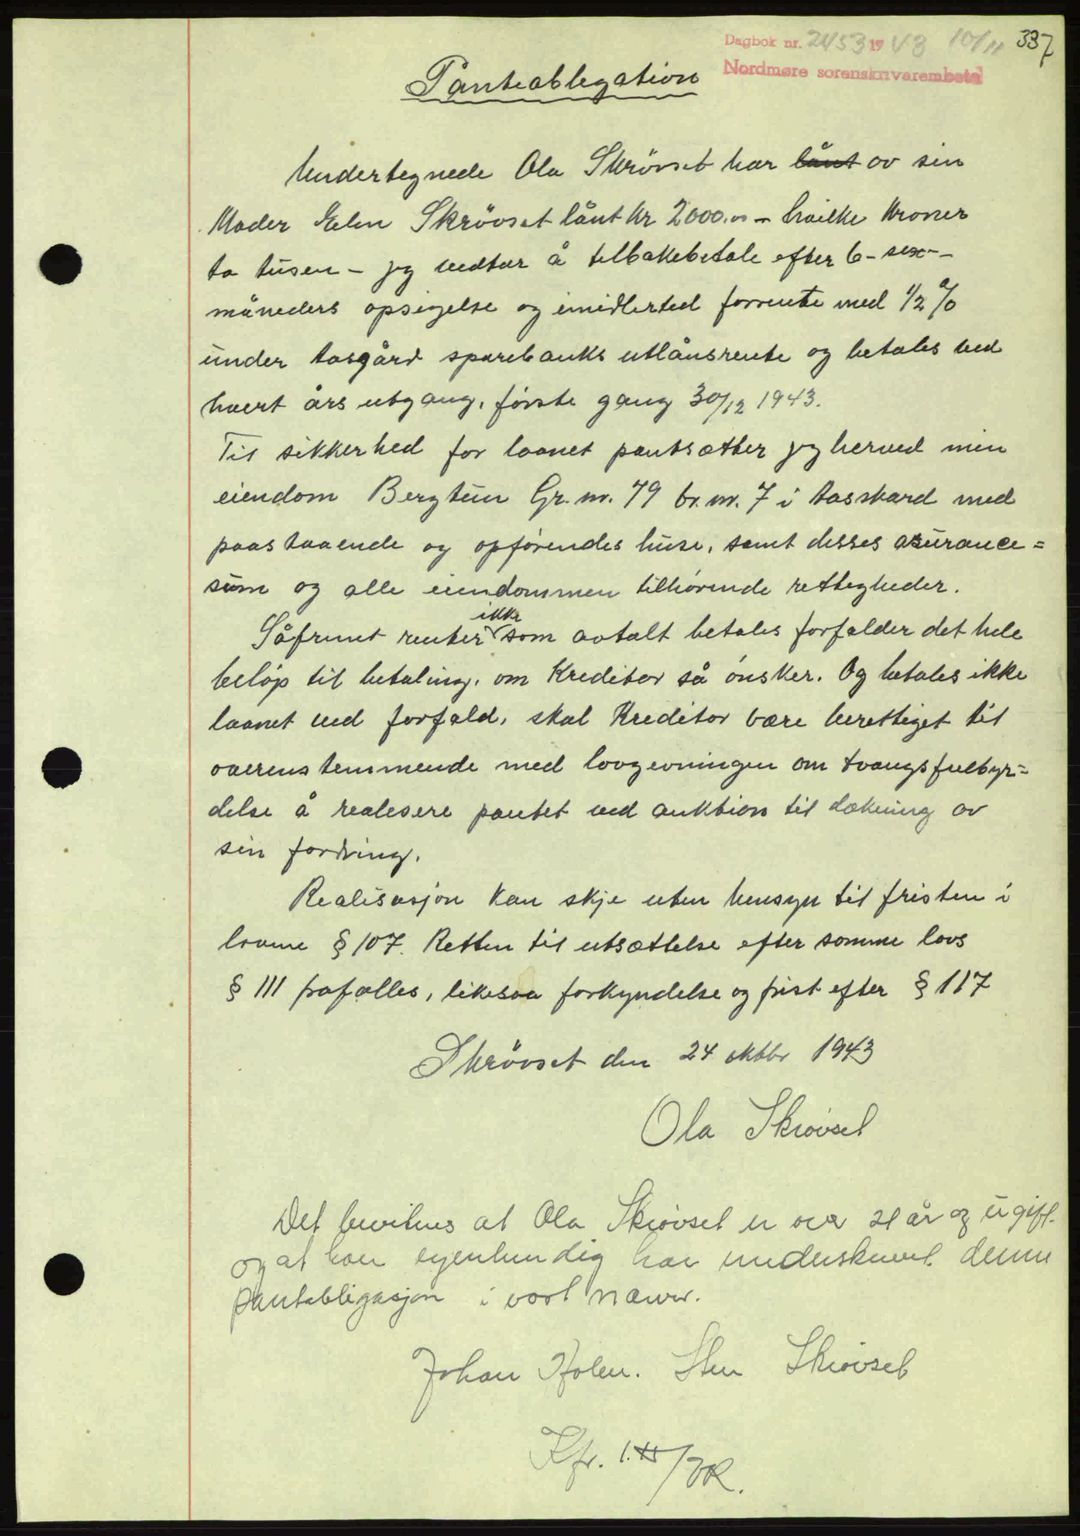 Dagbok nr. 2453 1943 10/11 337
Nordmøre sorenskrivarembete
Panteoblegation
Undertegnede Ola Skrövset har lånt av sin
Moder Elen Skrövset lånt kr 2000.00 – hvilke Kroner
to tusen – jeg vedtar å tilbakebetale efter 6 – sex –
måneders opsigelse og imidlerted forrente med 1/2 %
under Aasgård sparebanks utlånsrente og betales ved
hvert års utgang, första gang 30/12 1943.
Til sikkerhed for laanet pantsætter jeg herved min
eiendom Bergtun Gr. nr. 79 br. nr. 7 i Aasskard med
paastaaende og opførendes huse, samt disses assurance=
sum og alle eiendommen tilhörende rettigheder.
Såfremt renter ikke som avtalt betales forfalder det hele
beløp til betaling, om Kreditor så önsker. Og betales ikke
laanet ved forfald, skal Kreditor være berettiget til
overenstemmende med lovgevningen om tvangsfulbyr=
delse å realesere pantet ved auktion til dækning av
sin fordring.
Realisasjon kan skje uten hensyn til fristen i
lovene § 107. Retten til utsættelse efter somme lovs
§ 111 frafalles, likesaa forkyndelse og frist efter § 117
Skrövset den 24 oktbr 1943
Ola Skrövset
Det bevitnes at Ola Skrövset er over 21 år og ugift
og at han egenhendig har underskrevet denne
pantobligasjon i vort nærver.
Johan Holen. Sten Skrövset
Kfr.